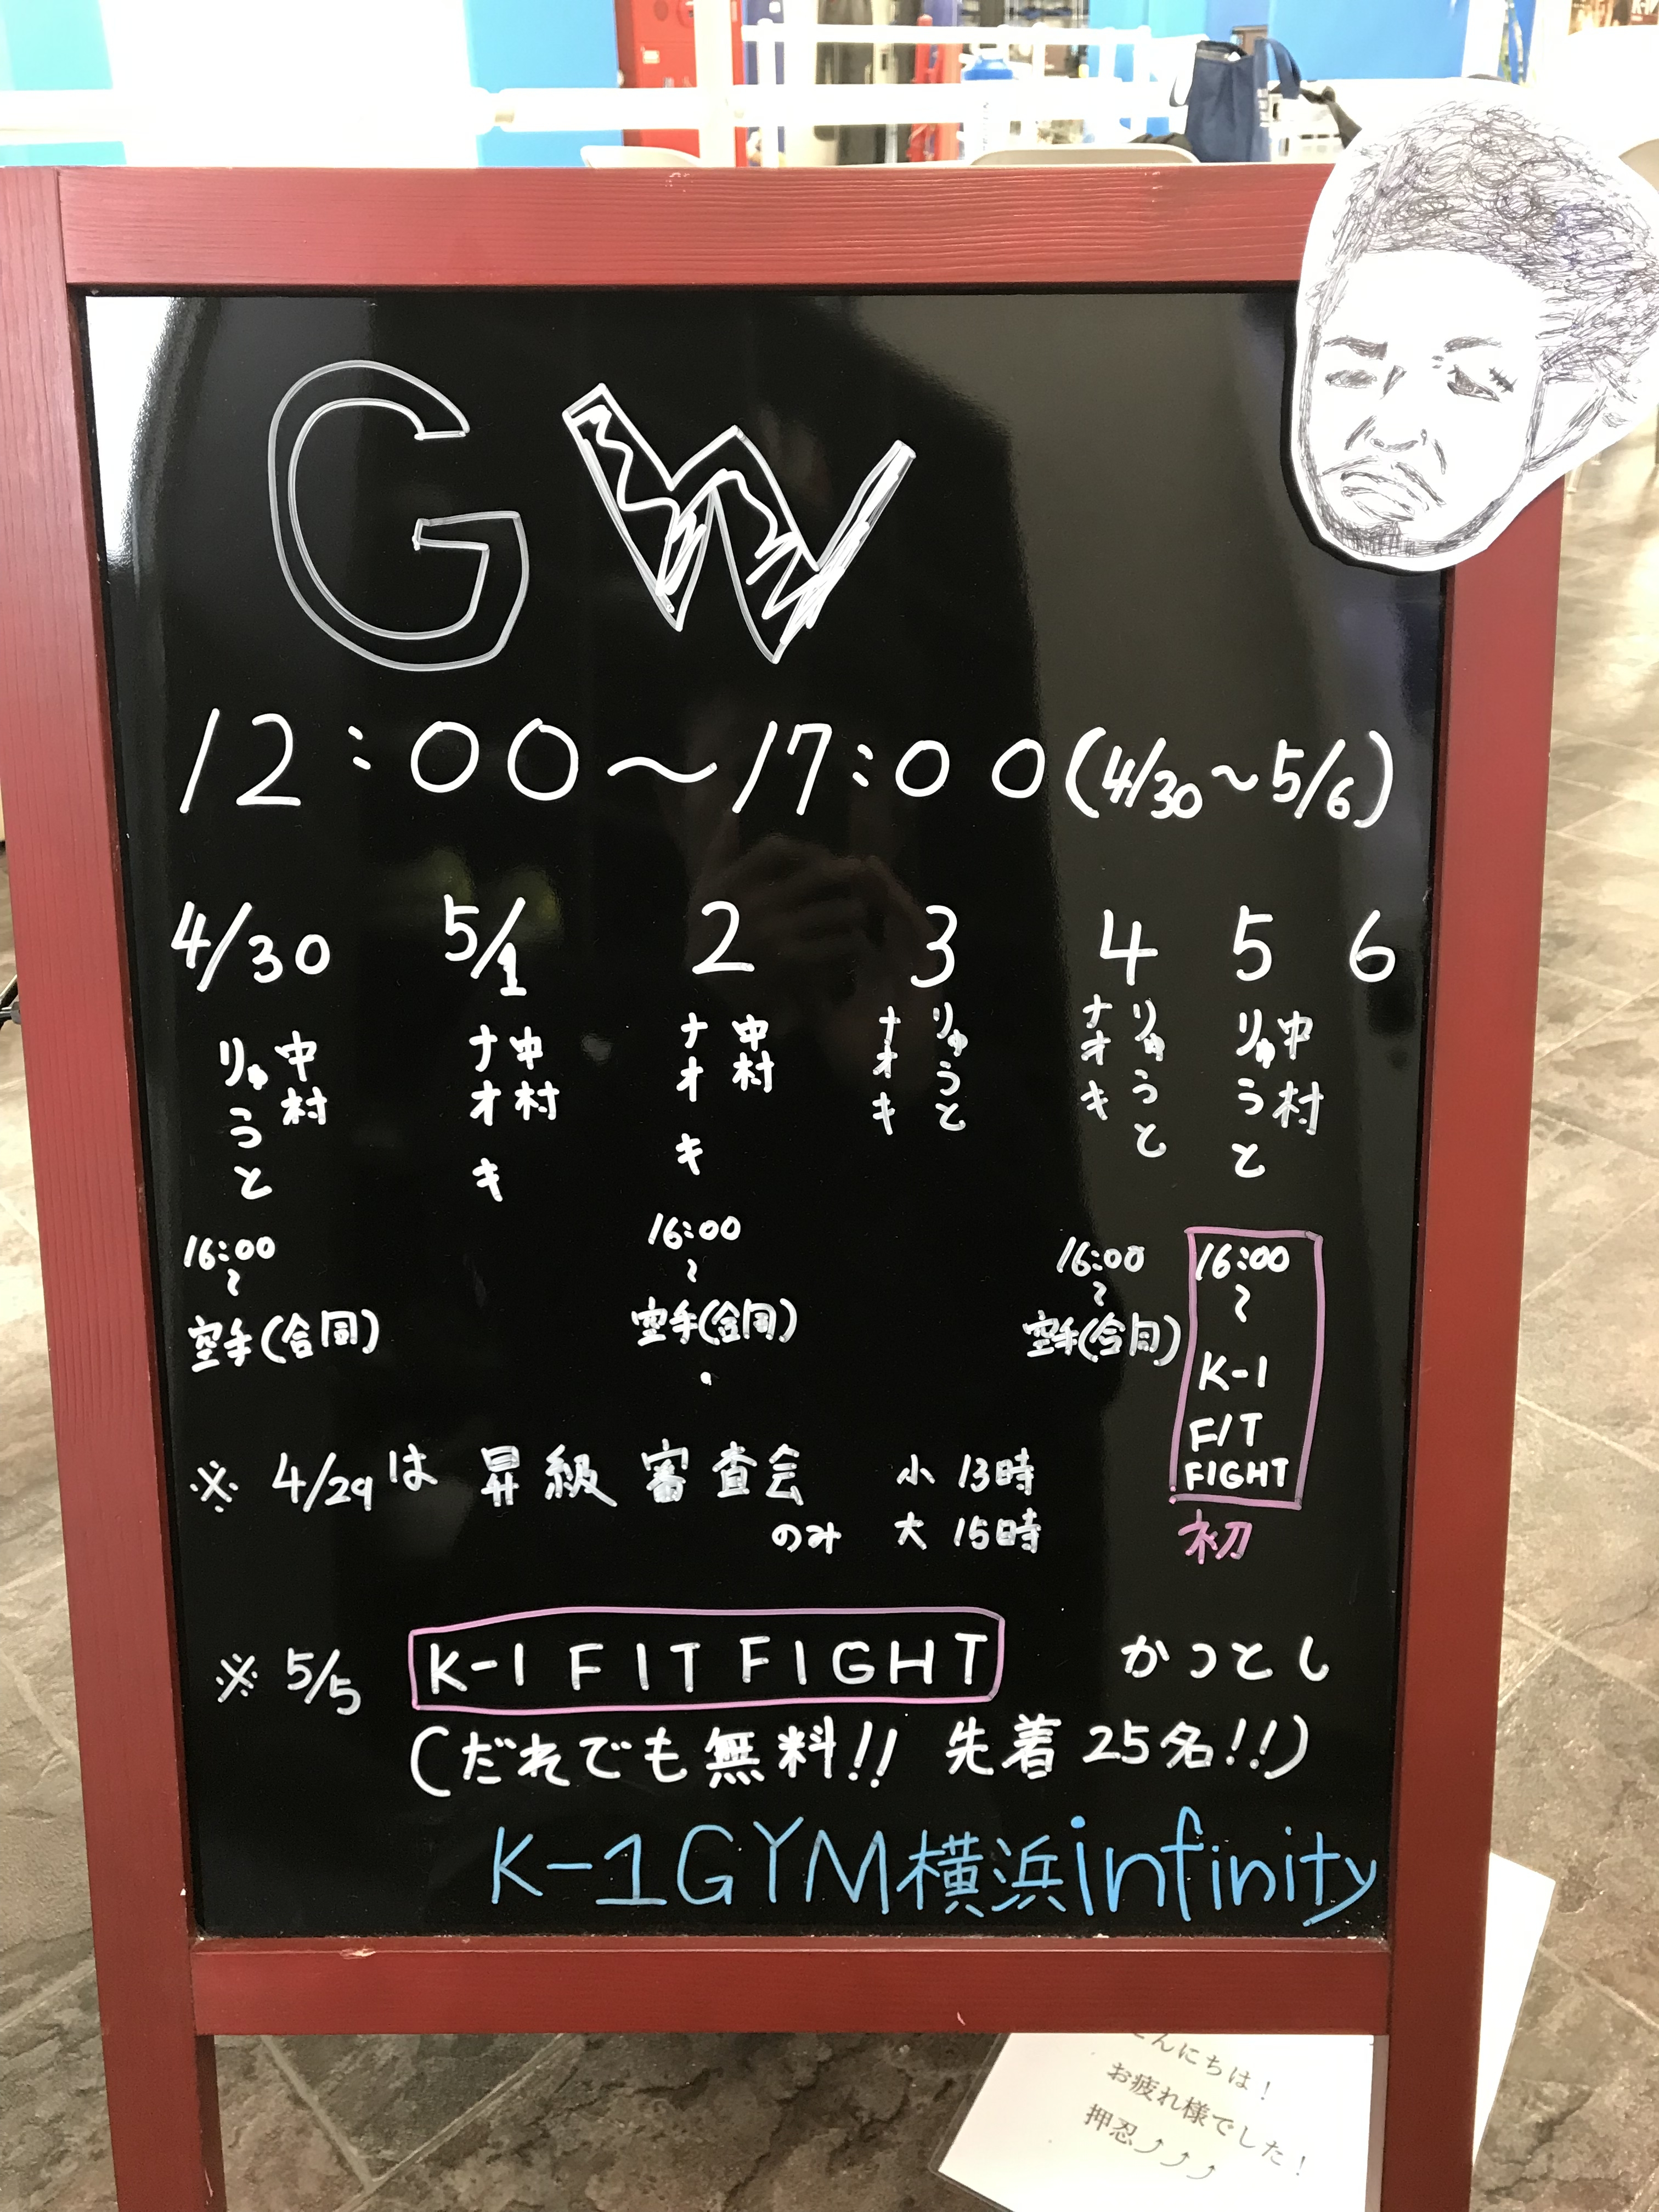 GW
12:00～17:00(4/30～5/6)
4/30 5/1 2 3 4 5 6
中村
りゅうと
中村
ナオキ
中村
ナオキ
りゅうと
ナオキ
りゅうと
ナオキ
中村
りゅうと
16:00
～
空手(合同)
16:00
～
空手(合同)
16:00
～
空手(合同)
16:00
～
K-1
FIT
FIGHT
初
※ 4/29は 昇級審査会 小 13時
のみ 大 15時
※ 5/5 K-1 FIT FIGHT かつとし
(だれでも無料!! 先着25名!!)
K-1GYM横浜infinity
こんにちは！
お疲れ様でした！
押忍⤴⤴⤴